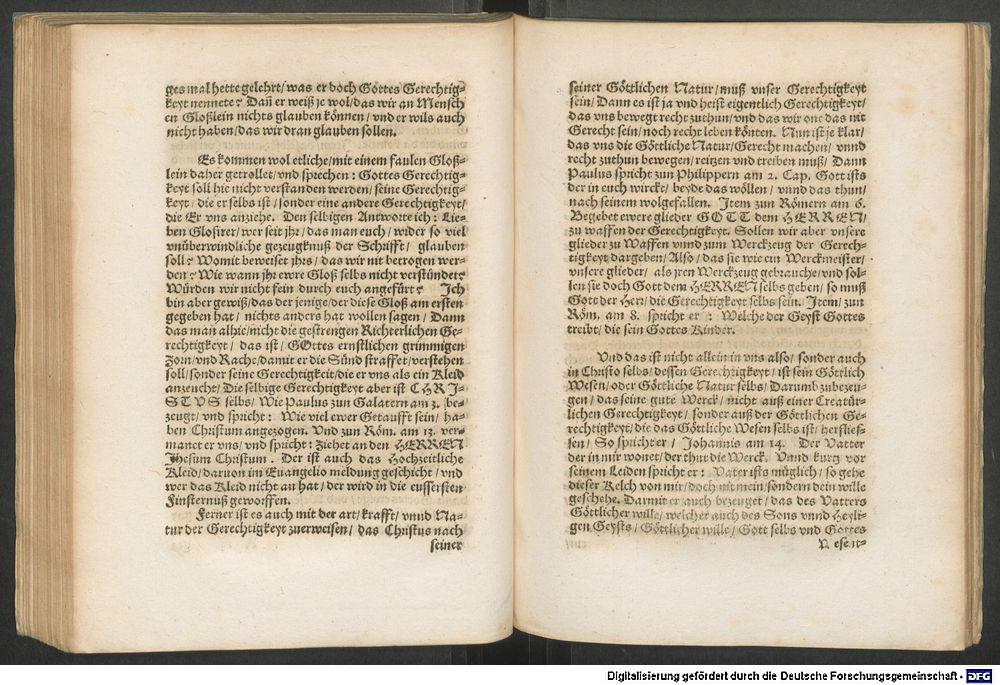 ges mal hette gelehrt/was er doch Gottes Gerechtig-
keyt nennete? Dañ er weiß je wol/das wir an Mensch
en Gloßlein nichts glauben können/vnd er wils auch
nicht haben/das wir dran glauben sollen.
Es kommen wol etliche/mit einem faulen Gloß-
lein daher getrollet/vnd sprechen: Gottes Gerechtig-
keyt soll hie nicht verstanden werden/seine Gerechtig-
keyt/die er selbs ist/sonder eine andere Gerechtigkeyt/
die Er vns anziehe. Den selbigen Antworte ich: Lie-
ben Glosirer/wer seit jhr/das man euch/wider so viel
vnüberwindliche gezeugknuß der Schrifft/glauben
soll? Womit beweiset jhrs/das wir nit betrogen wer-
den? Wie wann jhr ewre Gloß selbs nicht verstündet?
Würden wir nicht fein durch euch angefürt? Ich
bin aber gewiß/das der jenige/der diese Gloß am ersten
gegeben hat/nichts anders hat wollen sagen/Dann
das man alhie/nicht die gestrengen Richterlichen Ge-
rechtigkeyt/das ist/GOttes ernstlichen grimmigen
Zorn/vnd Rache/damit er die Sünd straffet/verstehen
soll/sonder seine Gerechtigkeit/die er vns als ein Kleid
anzeucht/Die selbige Gerechtigkeyt aber ist CHRI-
STVS selbs/Wie Paulus zun Galatern am 3. be-
zeugt/vnd spricht: Wie viel ewer Getaufft sein/ha-
ben Christum angezogen. Vnd zun Röm. am 13. ver-
manet er vns/vnd spricht: Ziehet an den HERREN
Jhesum Christum. Der ist auch das Hochzeitliche
Kleid/daruon im Euangelio meldung geschicht/vnd
wer das Kleid nicht an hat/der wird in die eussersten
Finsternuß geworffen.
Ferner ist es auch mit der art/krafft/vnnd Na-
tur der Gerechtigkeyt zuerweisen/das Christus nach
seiner
seiner Göttlichen Natur/muß vnser Gerechtigkeyt
sein/Dann es ist ja vnd heist eigentlich Gerechtigkeyt/
das vns bewegt recht zuthun/vnd das wir one das nit
Gerecht sein/noch recht leben könten. Nun ist je klar/
das vns die Göttliche Natur/Gerecht machen/vnnd
recht zuthun bewegen/reitzen vnd treiben muß/Dann
Paulus spricht zun Philippern am 2. Cap. Gott ists
der in euch wirckt/beyde das wöllen/vnnd das thun/
nach seinem wolgefallen. Item zun Römern am 6.
Begebet ewere glieder GOTT dem HERREN/
zu waffen der Gerechtigkeyt. Sollen wir aber vnsere
glieder zu Waffen vnnd zum Werckzeug der Gerech-
tigkeyt dargeben/Also/das sie wie ein Werckmeister/
vnsere glieder/als jren Werckzeug gebrauche/vnd sol-
len sie doch Gott dem HERREN selbs geben/so muß
Gott der Herr/die Gerechtigkeyt selbs sein. Item/zun
Röm. am 8. spricht er: Welche der Geyst Gottes
treibt/die sein Gottes Kinder.
Vnd das ist nicht allein in vns also/sonder auch
in Christo selbs/dessen Gerechtigkeyt/ist sein Götlich
Wesen/oder Göttliche Natur selbs/Darumb zubezeu-
gen/das seine gute Werck/nicht auß einer Creatür-
lichen Gerechtigkeyt/sonder auß der Göttlichen Ge-
rechtigkeyt/die das Göttliche Wesen selbs ist/herflies-
sen/So spricht er/Johannis am 14. Der Vatter
der in mir wonet/der thut die Werck. Vnnd kurtz vor
seinem Leiden spricht er: Vater ists müglich/so gehe
dieser Kelch von mir/doch nit mein/sondern dein wille
geschehe. Darmit er auch bezeuget/das des Vatters
Göttlicher wille/welcher auch des Sons vnnd Heyli-
gen Geysts/Göttlicher wille/Gott selbs vnd Gottes
Digitalisierung gefördert durch die Deutsche Forschungsgemeinschaft - DFG